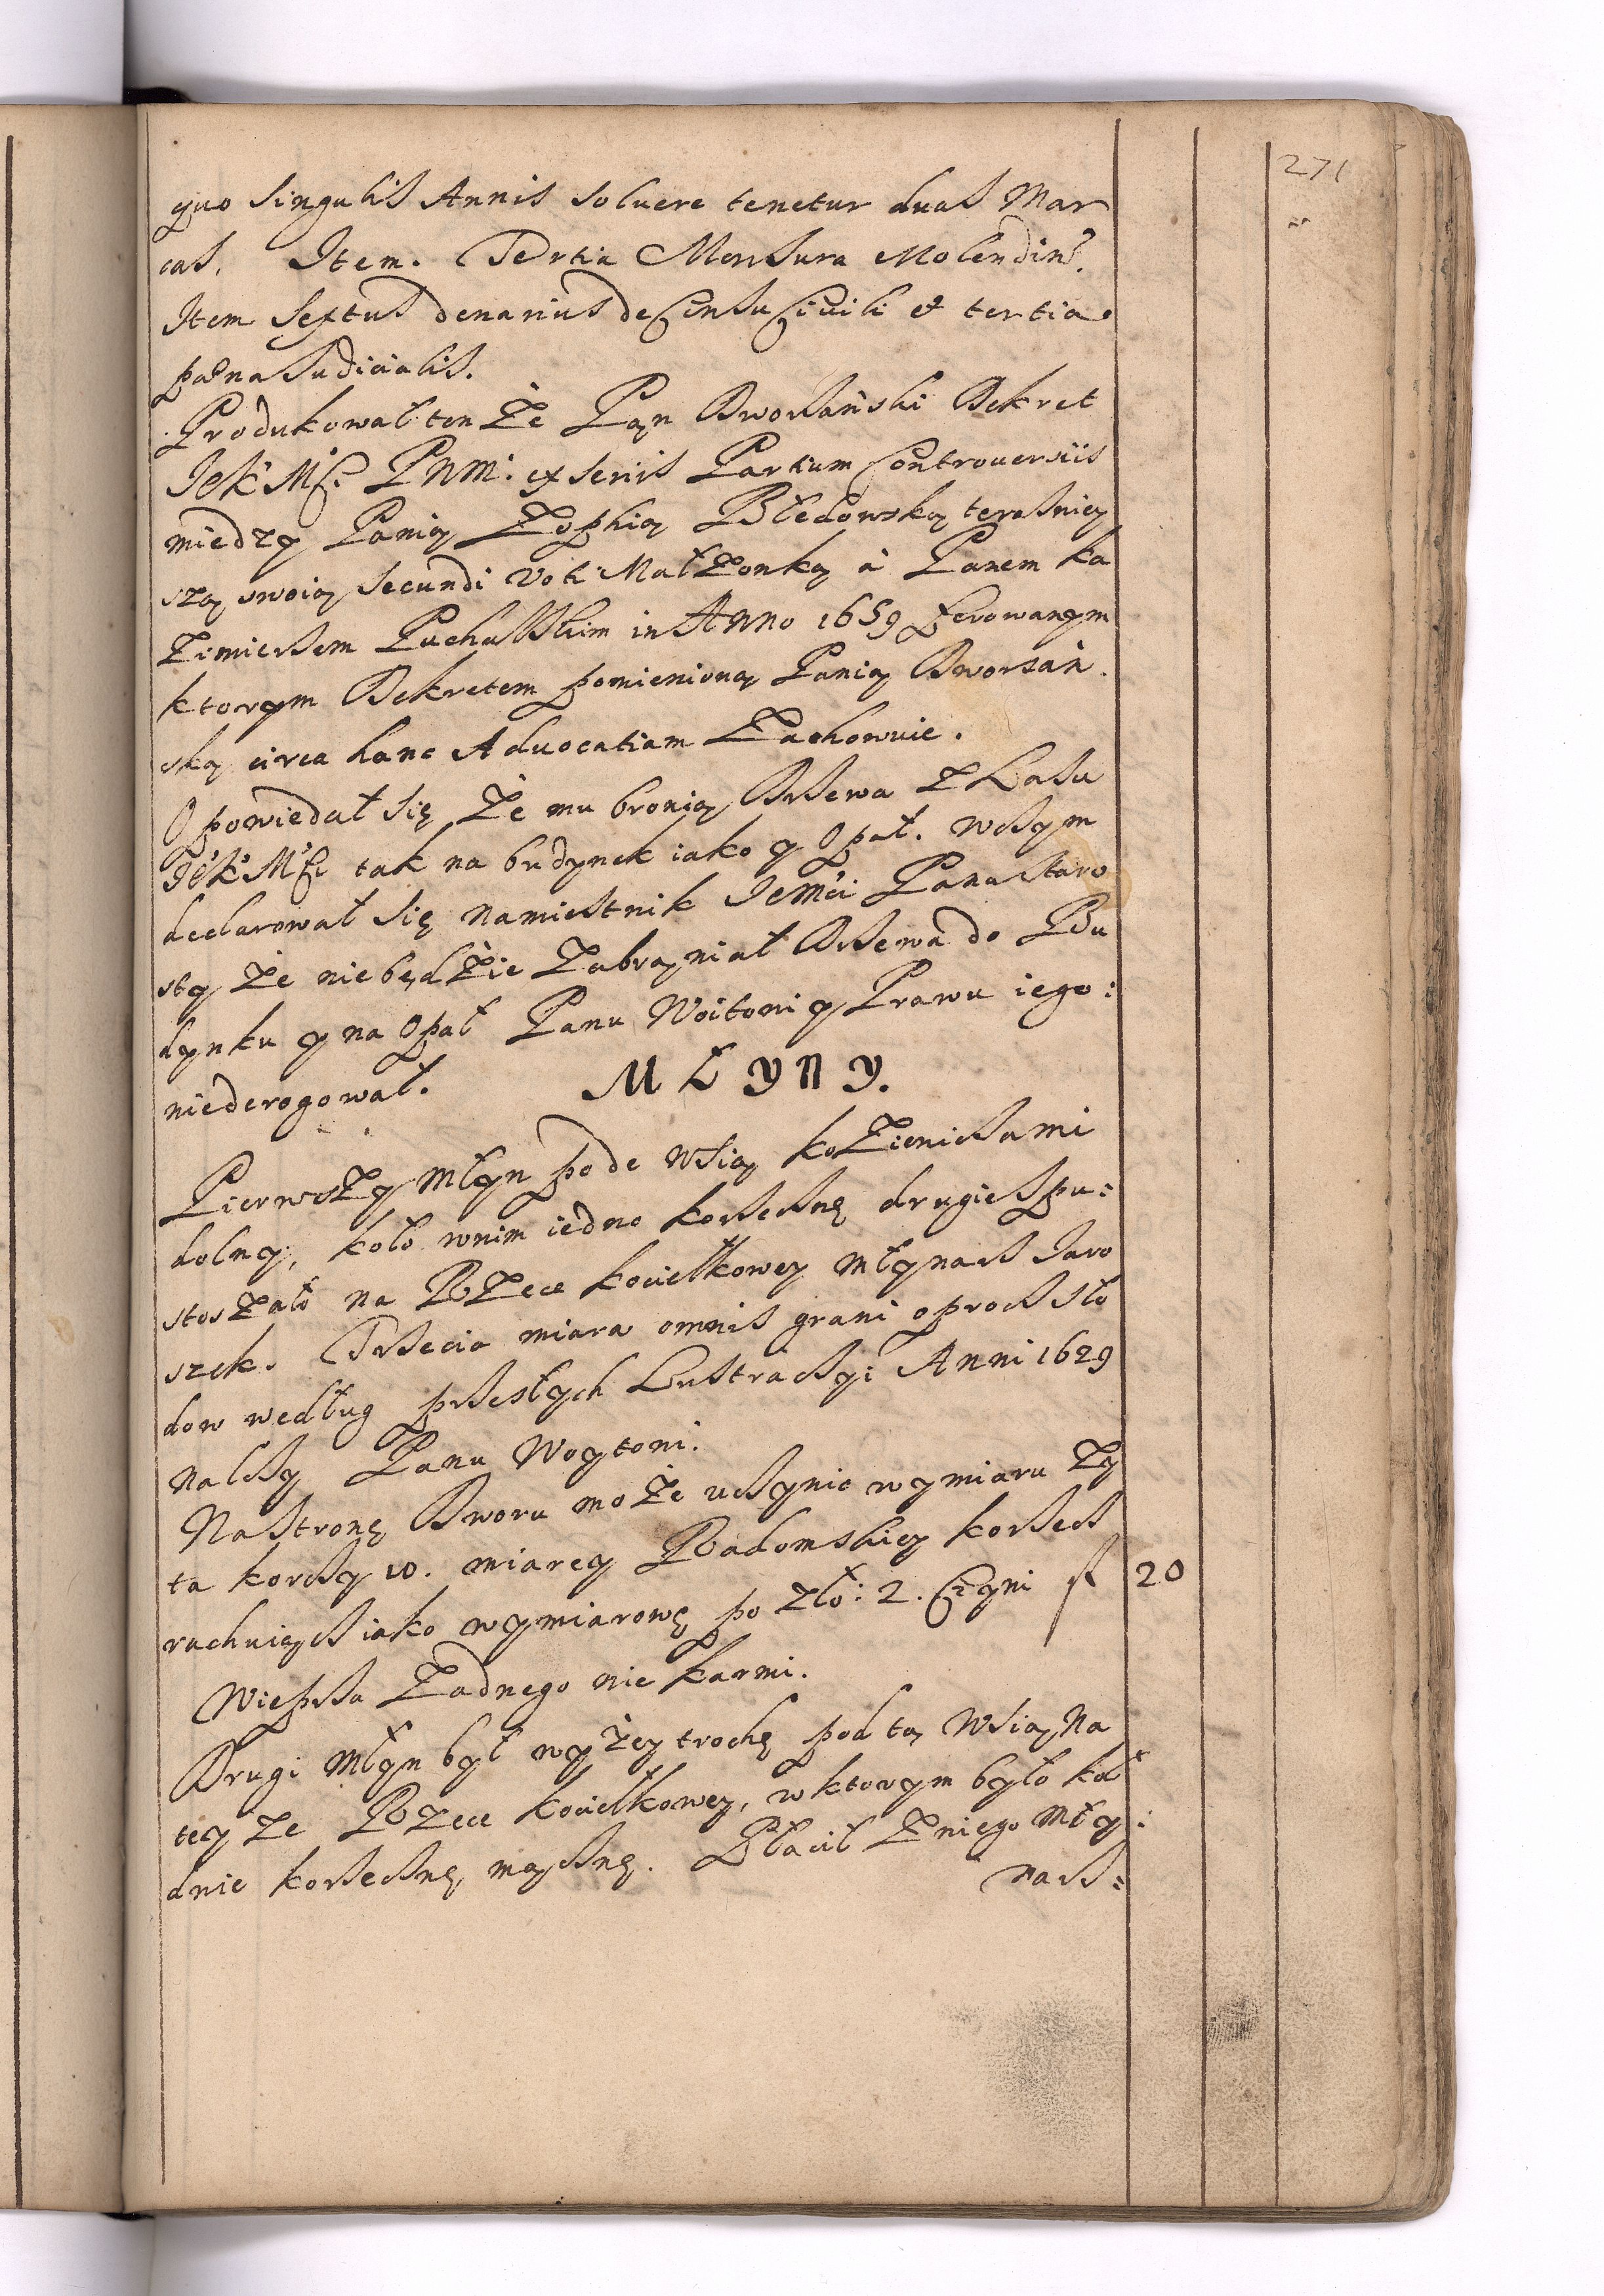 271
quo singulis Annis soluere tenetur duas Mar
cas. Item. Tertia Mensura Molendin:
Item sextus denarius de Censu Ciuili et tertia
pœna Judicialis.
Produkował ten że Pan Dworzański Dekret
JeK Mći PNM: ex serius Partium Controuersiis
miedzy Panią Zophią Błedowską teraznieỳ
szą swoią secundi Voti Małżonką à Panem ka
zimierzem Puchalskim in Anno 1659 ferowanym
ktorym Dekretem pomienioną Panią Dworzań.
ską circa hanc Aduocatiam Zachowuie.
Opowiedał się że mu bronią Drzewa z Lasu
JeºKº Mści tak na budynek iako y Opał. wczym
declarował się namiestnik Jemći Pana staro
sty że niebędzie zabraniał Drzewa do Bu
dynku y na Opał Panu Woitowi y Prawu iego:
niederogował.
MŁYNY.
Pierwszy Młyn pode wsią kozienicami
dolny, koło wnim iedno korzeczne drugie spu:
stoszało na Rzece kociełkowey młynarz Jaro
szek. Trzecia miara omnis grani oprocz sło
dow według przeszłych Lustracyi Anni 1629
należy Panu Woytowi.
Na stronę Dworu może uczynic wymiaru ży
ta korcy 10. miarey Radomskiey korzec
rachuiąc iako wymiarowę po zło: 2. Czyni f 20
Wieprza żadnego nie karmi.
Drugi Młyn był wyżey trochę pod tą Wsią Na
tey ze Rzece kociełkowey, w ktorym było koł
dnie korzecznę mączne. Płacił zniego młỳ:
narz: